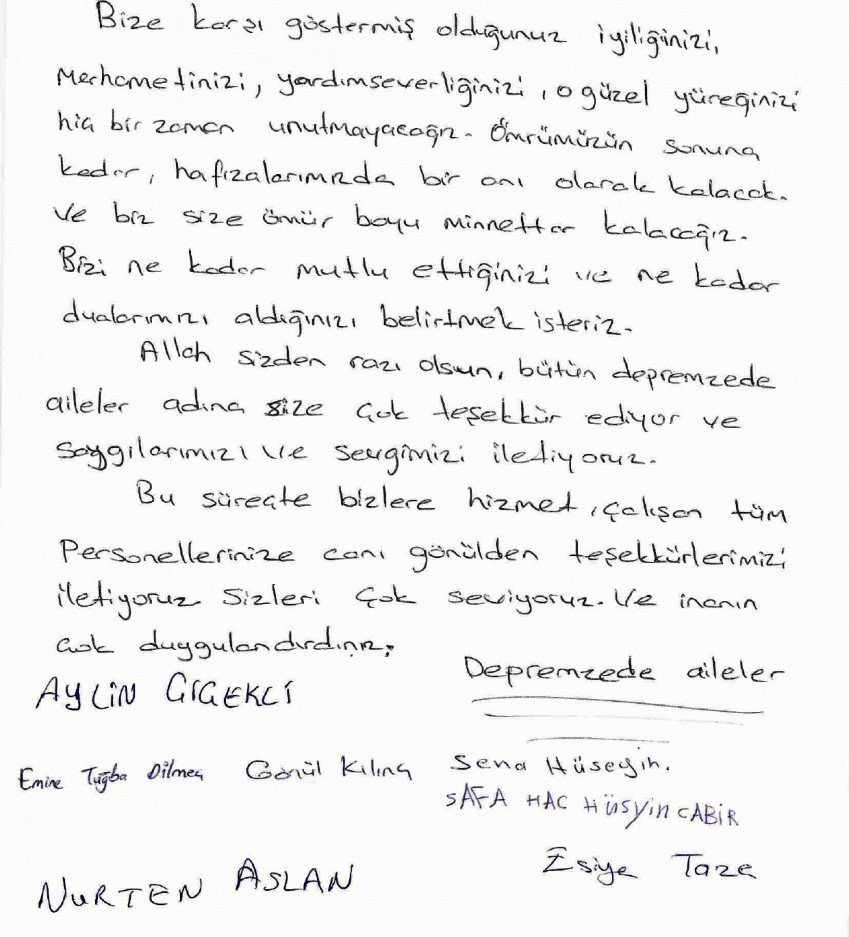 Bize karşı göstermiş olduğunuz iyiliğinizi,
Merhametinizi, yardımseverliğinizi, o güzel yüreğinizi
hiç bir zaman unutmayacağız. Ömrümüzün sonuna
kadar, hafızalarımızda bir anı olarak kalacak.
Ve biz size ömür boyu minnettar kalacağız.
Bizi ne kadar mutlu ettiğinizi ve ne kadar
dualarımızı aldığınızı belirtmek isteriz.
Allah sizden razı olsun, bütün depremzede
aileler adına size çok teşekkür ediyor ve
saygılarımızı ve sevgimizi iletiyoruz.
Bu süreçte bizlere hizmet, çalışan tüm
Personellerinize canı gönülden teşekkürlerimizi
iletiyoruz Sizleri çok seviyoruz. Ve inanın
çok duygulandırdınız.
Depremzede aileler
AYLİN ÇİÇEKCİ
Emine Tuğba Dilmeç Gönül Kılınç Sena Hüseyin.
SAFA HAC HÜSYİN CABİR
NURTEN ASLAN Esiye Taze